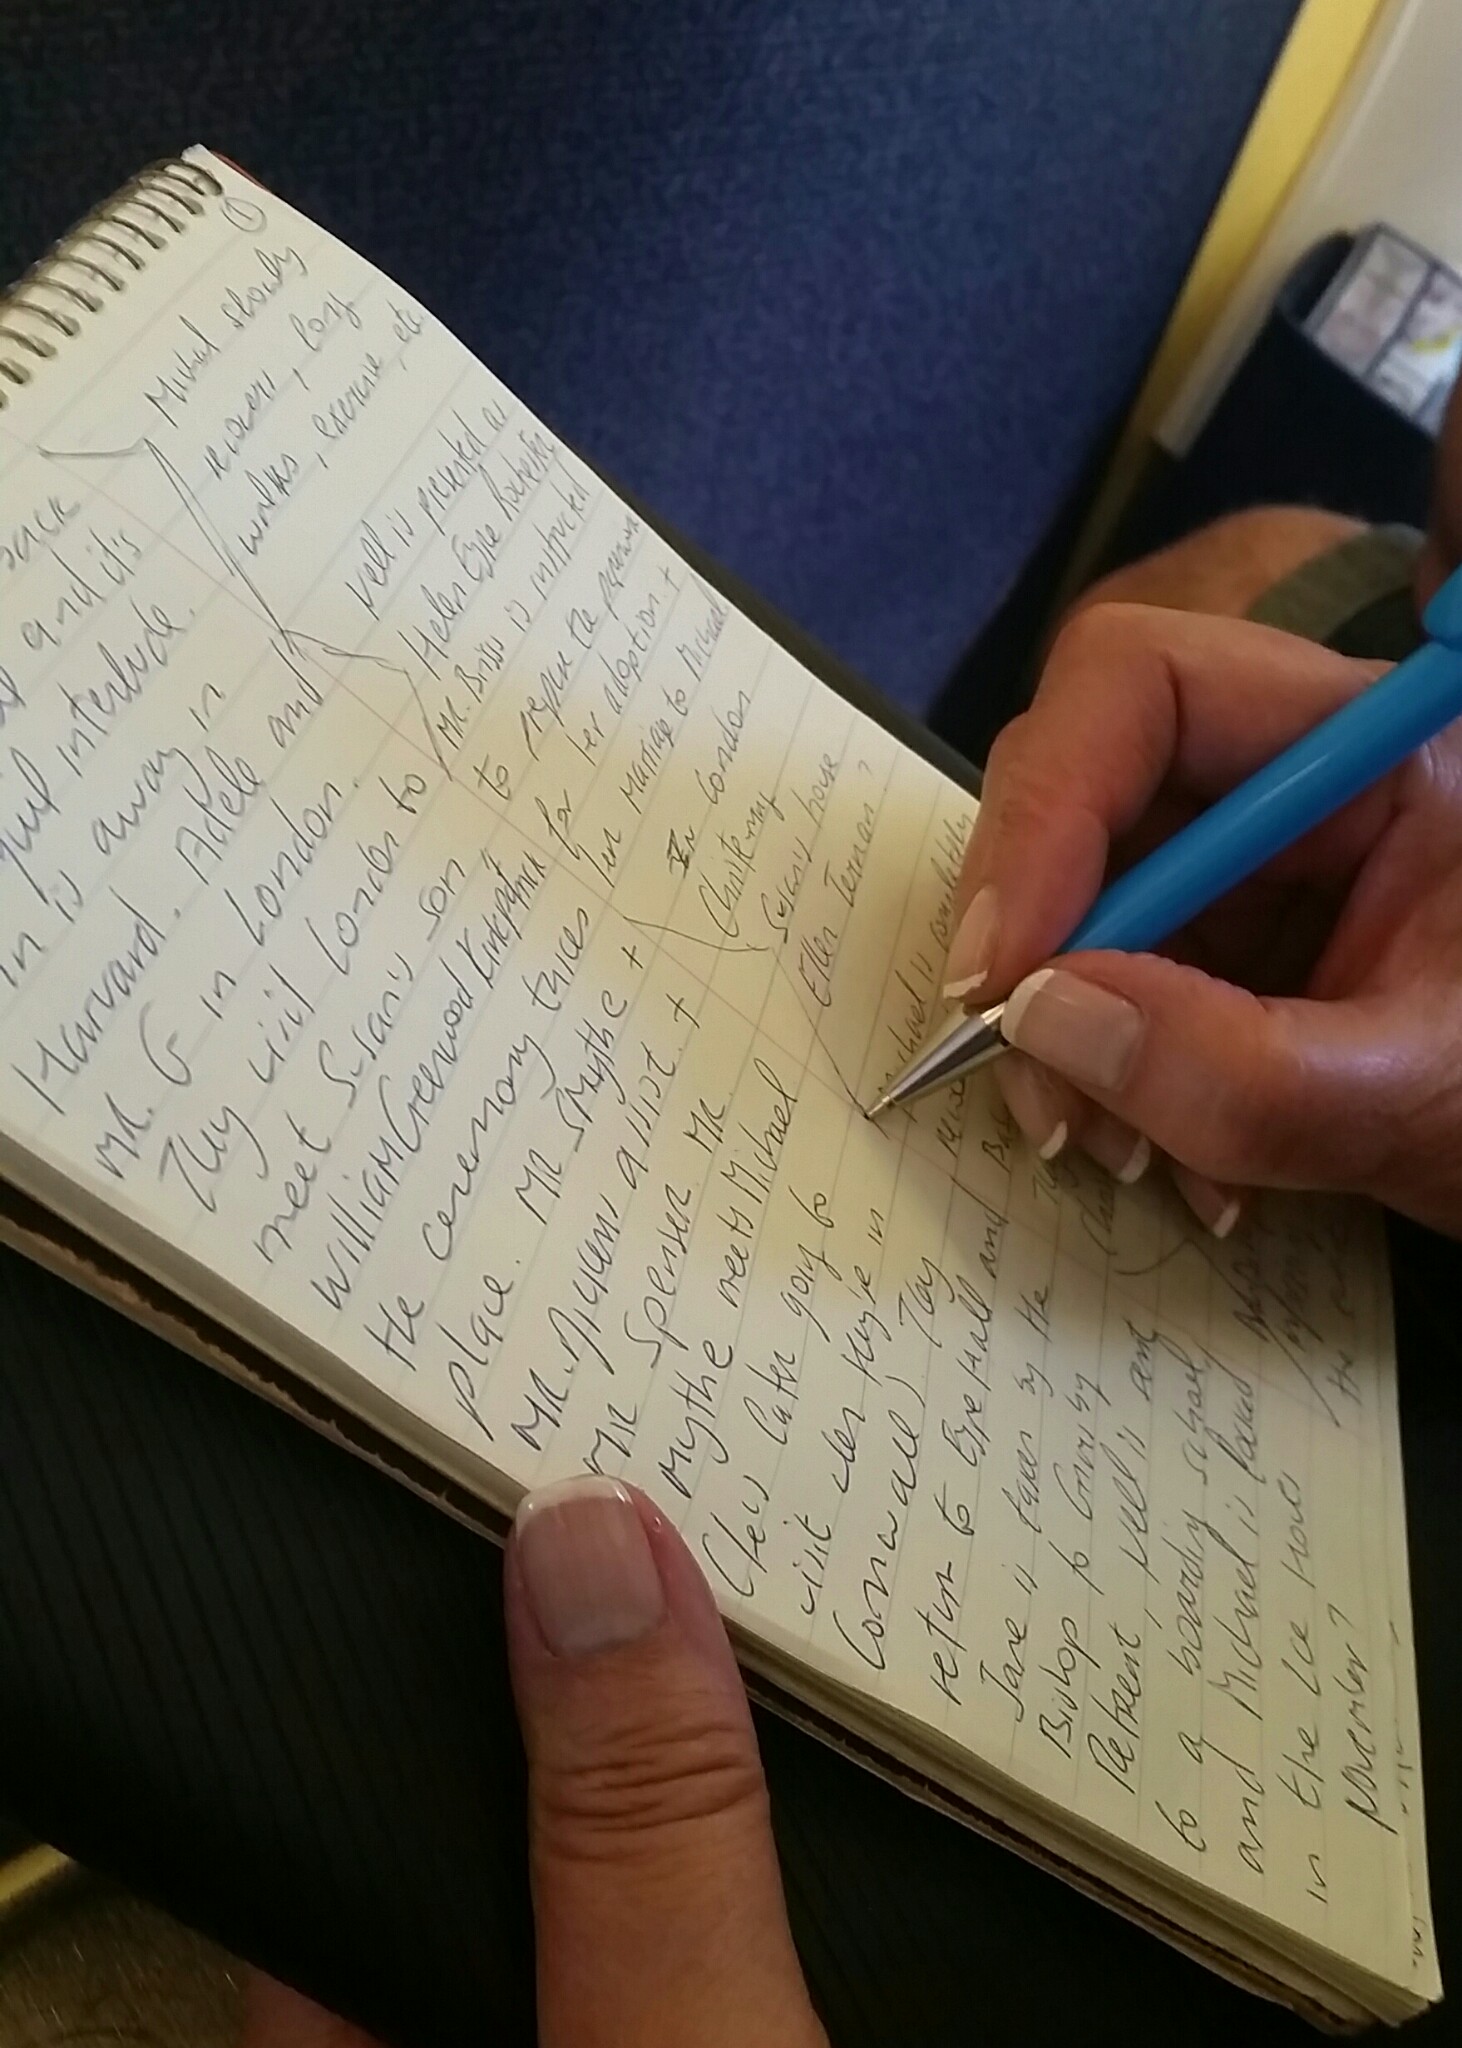 ①
Michael slowly
recovers, long
walks, exercise, etc.
and it's
interlude.
in is away in
Harvard. Adele and
Mr. G in London.
They visit London to
meet Susan's son
William Greenwood Kirkpatrick
the ceremony takes
place. Mr Smythe +
Mr. Dickens assist +
Mr Spenser. Mr.
Mythe meets Michael
(he is later going to
visit
Cornwall) They
return to Eyre Hall and
Jane is taken by the
Bishop to Grimsby
Retreat, Nell is sent
to a boarding school
and Michael is found
in the ice house
November?
Nell is presented as
Helen Eyre Rochester
Mr. Briggs is instructed
to prepare the paperwork
for her adoption. +
her marriage to Michael
In London
Christening
Susan's house
Ellen Ternan?
Michael is completely